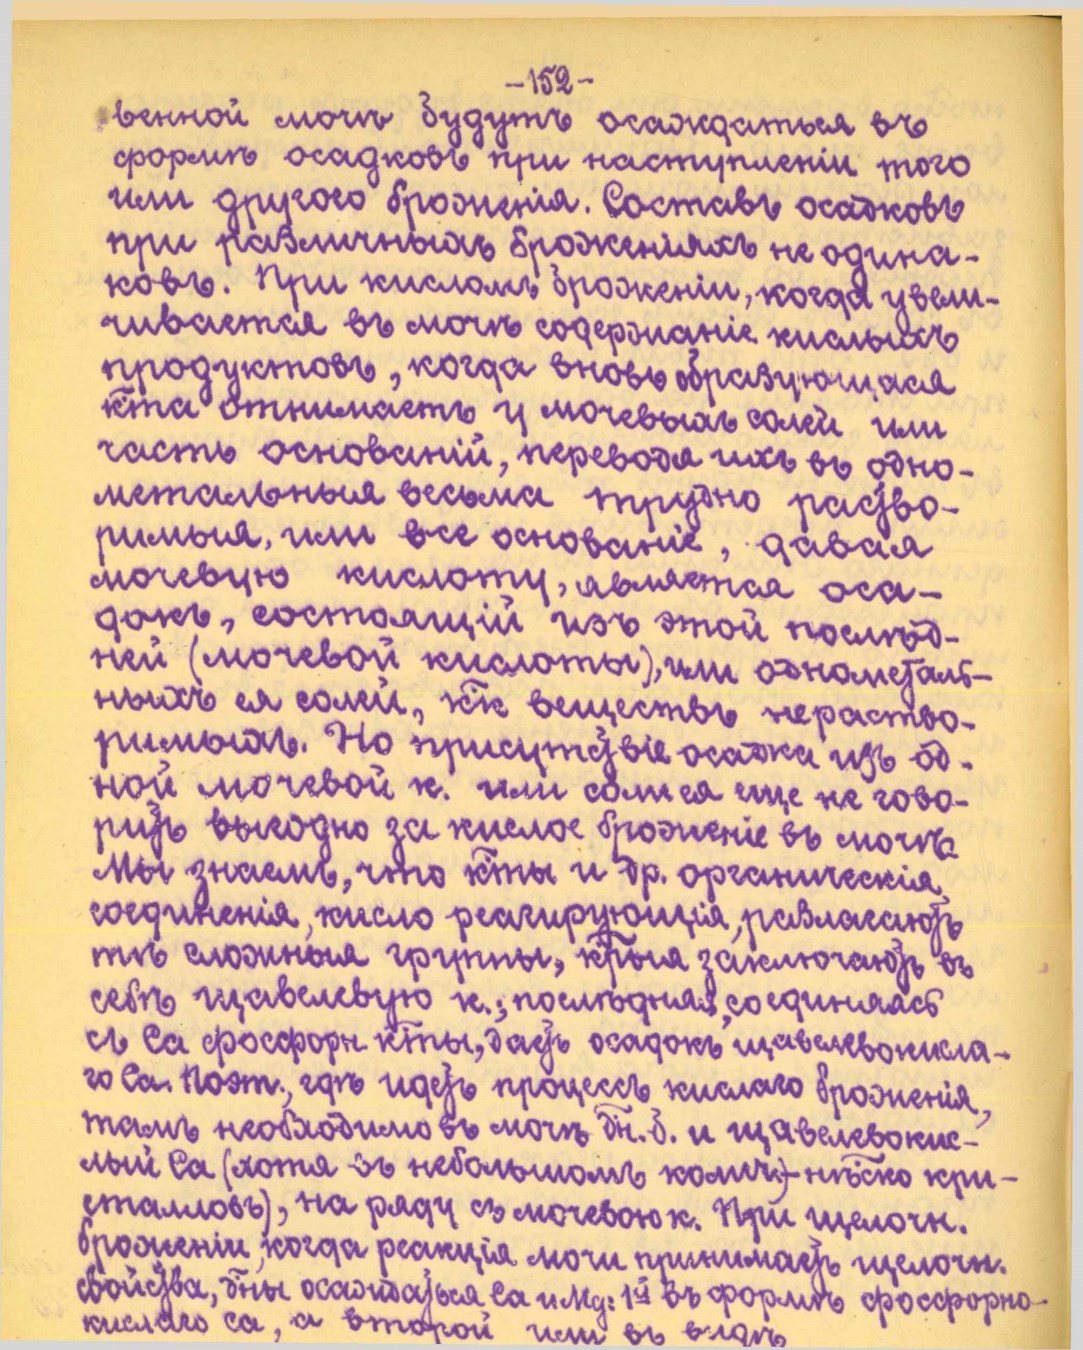 -152-
венной мочѣ будутъ осаждаться въ
формѣ осадковъ при наступленіи того
или другого броженія. Составъ осадковъ
при различныхъ броженіяхъ не одина-
ковъ. При кисломъ броженіи, когда увели-
чивается въ мочѣ содержаніе кислыхъ
продуктовъ, когда вновь образующаяся
к̅та отнимаетъ у мочевыхъ солей или
часть основаній, переводя ихъ въ одно-
метальныя весьма трудно раство-
римыя, или все основаніе, давая
мочевую кислоту, является оса-
докъ, состоящій изъ этой послѣд-
ней (мочевой кислоты), или однометаль-
ныхъ ея солей, к̅к веществъ нераство-
римыхъ. Но присутствіе осадка изъ од-
ной мочевой к. или солей ея еще не гово-
ритъ выгодно за кислое броженіе въ мочѣ
Мы знаемъ, что к̅ты и др. органическія
соединенія, кисло реагирующія, разлагаютъ
тѣ сложныя группы, к̅рыя заключаютъ въ
себѣ щавелевую к.; послѣдняя, соединяясь
съ Ca фосфорн. к̅ты, даетъ осадокъ щавелевокисла-
го Ca. Поэт., гдѣ идетъ процессъ кислаго броженія,
тамъ необходимо въ мочѣ д̅н. б. и щавелевокис-
лый Ca (хотя въ небольшомъ колич.-нѣско кри-
сталловъ), на ряду съ мочевою к. При щелочн.
броженіи, когда реакція мочи принимаетъ щелочн.
свойства, д̅ны осаждаться Ca и Mg: 1й въ формѣ фосфорно-
кислаго Ca, а второй или въ видѣ